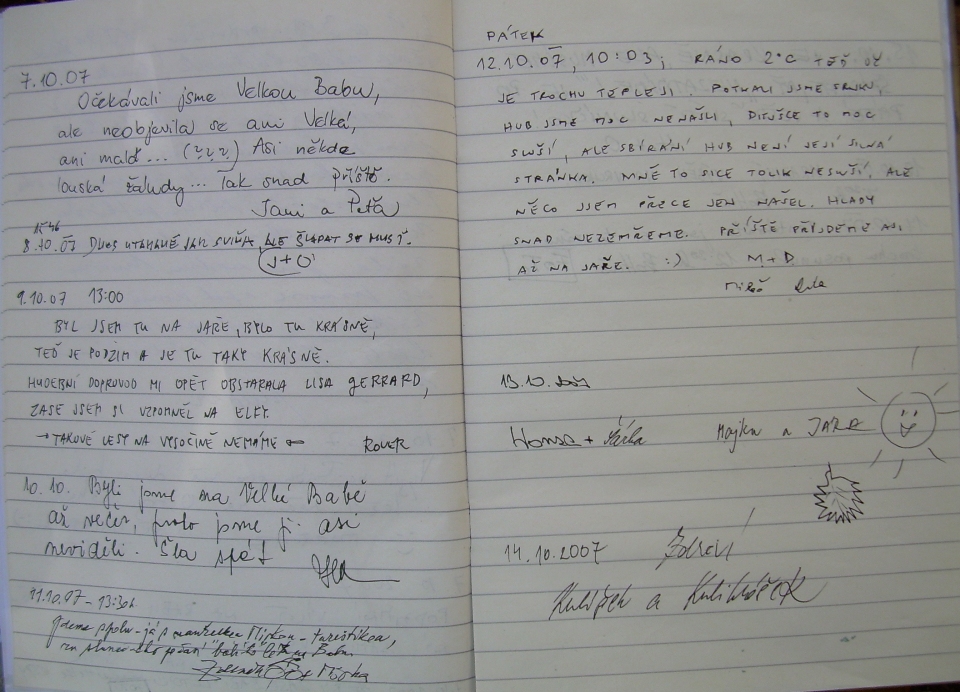 7.10.07
Očekávali jsme Velkou Babu,
ale neobjevila se ani Velká,
ani malá... (???) Asi někde
louská žaludy... Tak snad příště.
Jani a Peťa
8.10.07 DNES UTAHANÉ JAK SVIŇA, ALE ŠLAPAT SE MUSÍ.
J+O
9.10.07 13:00
BYL JSEM TU NA JAŘE, BYLO TU KRÁSNĚ,
TEĎ JE PODZIM A JE TU TAKY KRÁSNĚ.
HUDEBNÍ DOPRUVOD MI OPĚT OBSTARALA LISA GERRARD,
ZASE JSEM SI VZPOMNĚL NA ELFY.
→TAKOVÉ LESY NA VYSOČINĚ NEMÁME← ROVER
10.10. Byli jsme na Velké Babě
až večer, proto jsme ji asi
neviděli. Šla spát
11.10.07 - 13:30h.
Jdeme spolu - já s manželkou Mirkou - turistikou,
Babu
Zdeněk Mirka
PÁTEK
12.10.07, 10:03, RÁNO 2°C TEĎ UŽ
JE TROCHU TEPLEJI. POTKALI JSME SRNKU,
HUB JSME MOC NENAŠLI, DITUŠCE TO MOC
SLUŠÍ, ALE SBÍRÁNÍ HUB NENÍ JEJÍ SILNÁ
STRÁNKA. MNĚ TO SICE TOLIK NESLUŠÍ, ALE
NĚCO JSEM PŘECE JEN NAŠEL. HLADY
SNAD NEZEMŘEME. PŘÍŠTĚ PŘIJDEME ASI
AŽ NA JAŘE. :) M+D
13.10.2007
Honza + Majka a JARA
14.10.2007 Zdraví
Kulíšek a